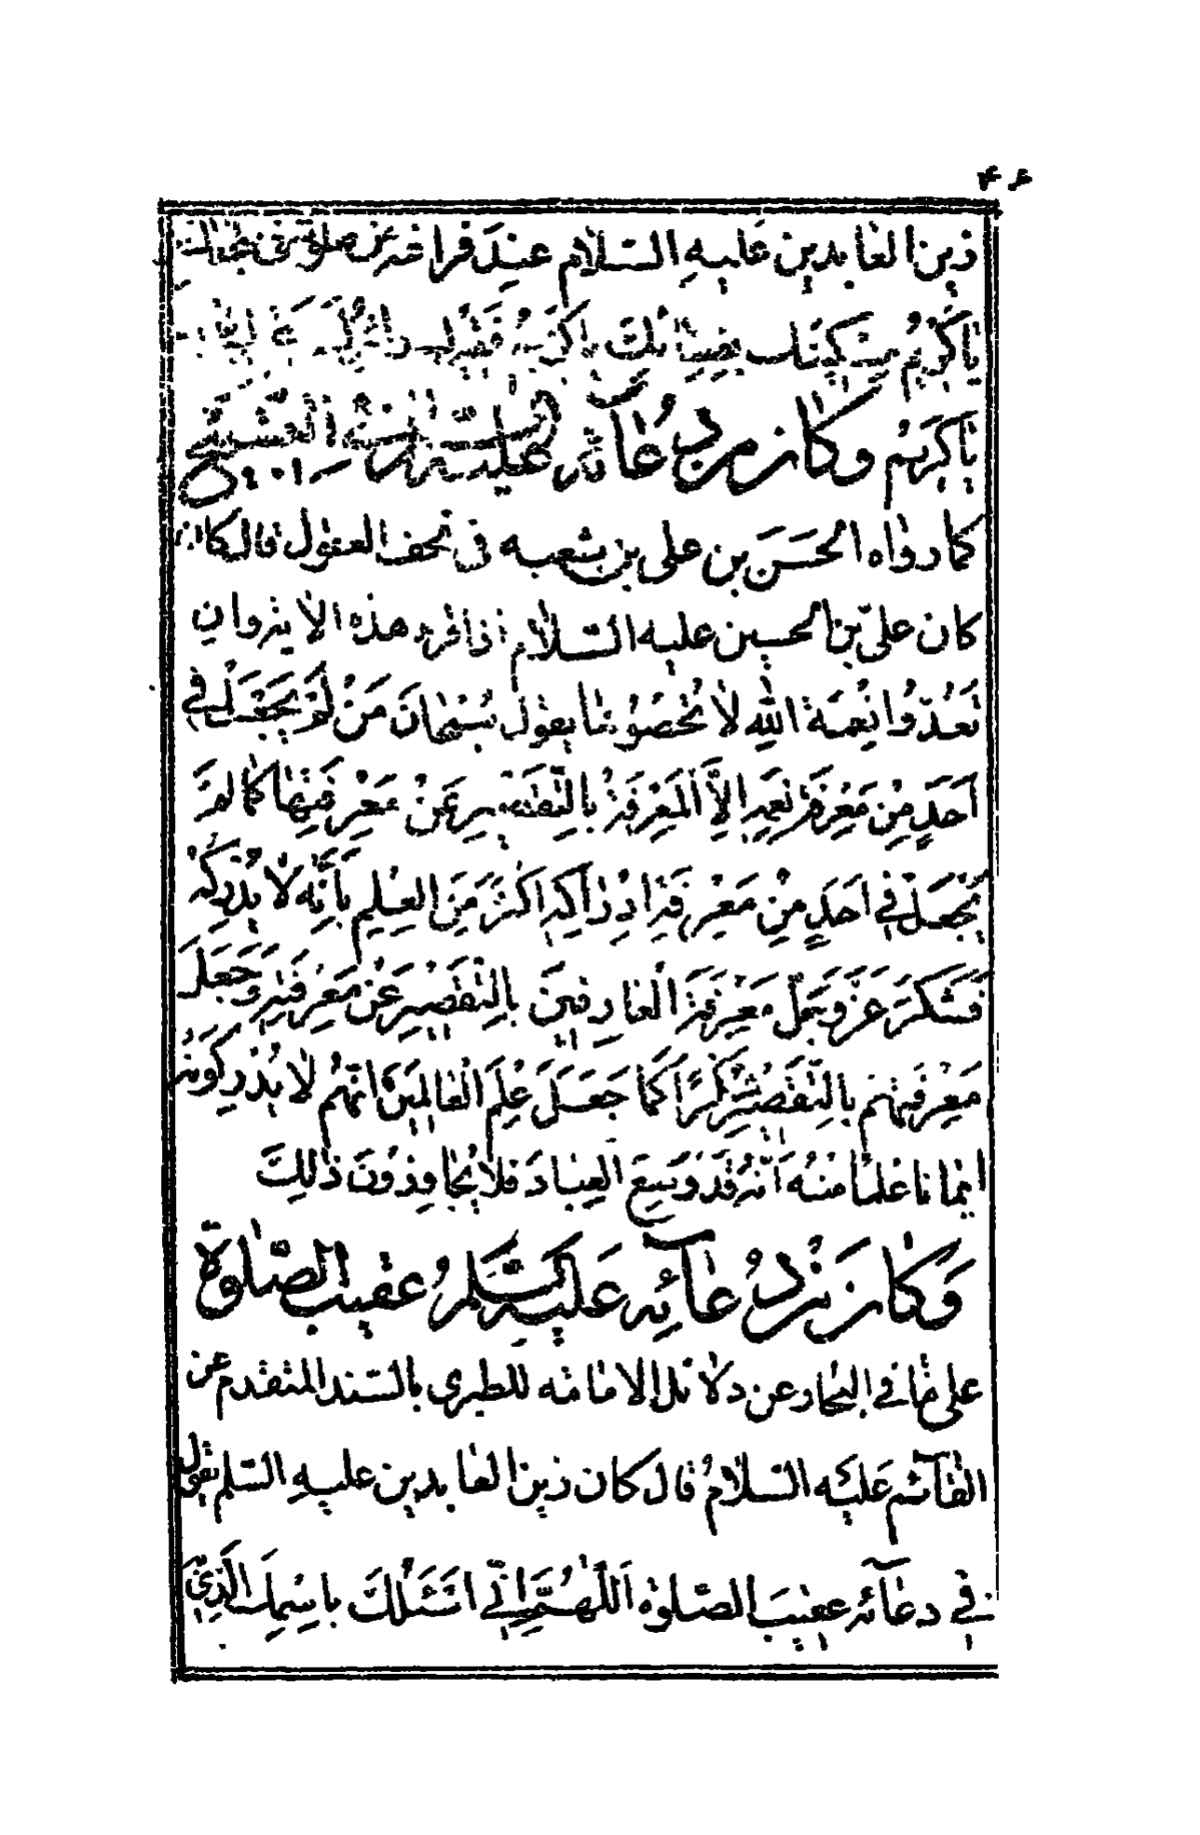 ۴۶
زين العابدين عليه السلام عند فراغه من صلوته في
يا كريم مسكينك بفنائك يا كريم فقيرك زائرك
يا كريم وكان من دعآئه عليه السلام
كما رواه الحسن بن على بن شعبه فى تحف العقول قال كان
كان علىّ بن الحسين عليه السّلام اذا قرء هذه الاية وان
تَعُدّوُا نِعْمَةَ اللهِ لا تُحْصوُها يقول سُبْحانَ مَنْ لَمْ يَجْعَلْ في
اَحَدٍ مِنْ مَعْرِفَةِ نِعَمِهِ اِلاَّ الْمَعْرِفَةَ بِالتَّقْصيرِ عَنْ مَعْرِفَتِها كَما لَمْ
يَجْعَلْ في اَحَدٍ مِنْ مَعْرِفَةِ اِدْراكِهِ اَكْثَرَ مِنَ الْعِلْمِ بِاَنَّه لا يُدْرِكُهُ
فَشَكَرَ عَزَّ وَجَلَّ مَعْرِفَةَ الْعارِفينَ بِالتَّقْصيرِ عَنْ مَعْرِفَتِهِ وَجَعَلَ
مَعْرِفَتَهُمْ بِالتَّقْصيرِ شُكْرًا كَما جَعَلَ عِلْمَ الْعالِمينَ اَنَّهُمْ لا يُدْرِكوُنَهُ
ايمانا عِلْمًا مِنْهُ اَنَّهُ قَدْ وَسِعَ الْعِبادَ فَلا يُجاوِزوُنَ ذٰلِكَ
وَكانَ مِنْ دُعآئِه عَلَيْهِ السَّلامُ عقيب الصّلوة
على ما في البحار عن دلائل الامامه للطبرى بالسّند المتقدم عن
القآئم عَلَيْه السّلامُ قال كان زين العابدين عليه السّلم يقول
في دعآئه عقيبَ الصّلوة اَللّهُمَّ اِنّي اَسْئَلُكَ بِاسْمِكَ الَّذي